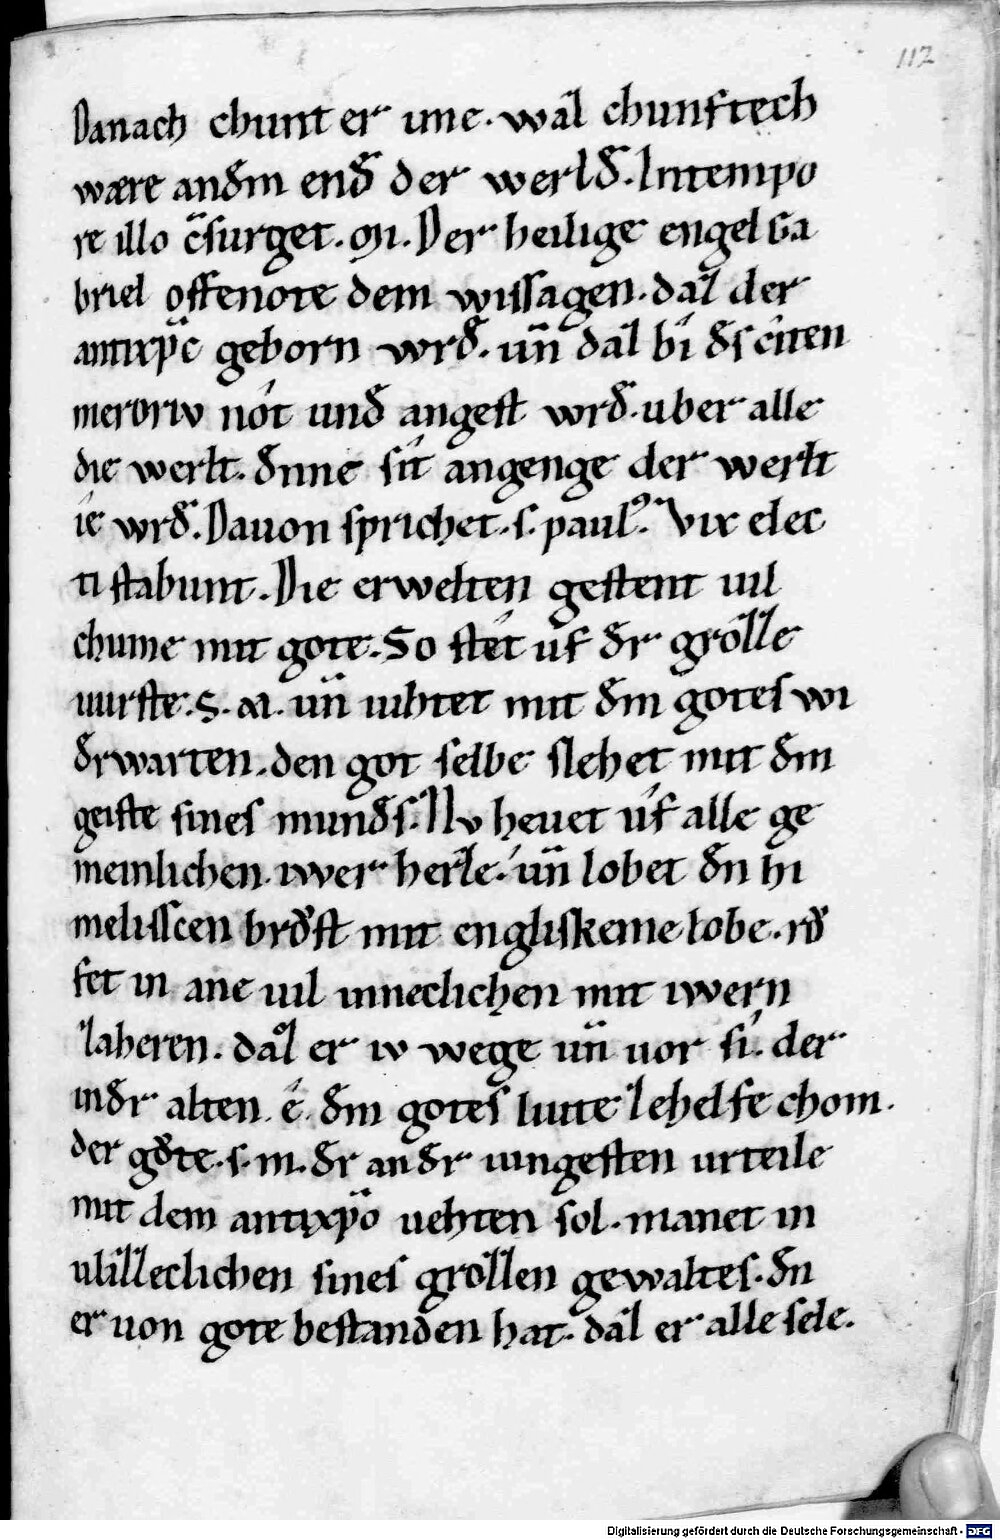 112
Danach chunt er ime. waz chunftech
wære anđm enđ der werlđ. Intempo
re illo c̄surget. M. Der heilige engel Ga
briel offenote dem wissagen. daz der
antixp̄c geborn wrđ. un̄ daz bí đs cíten
merorıv nót unđ angest wrđ. uber alle
die werlt. đnne sít angenge der werlt
íe wrđ. Dauon sprichet. s. paulꝰ. Vix elec
ti stabunt. Die erwelten gestent uil
chume mit gote. So stét uf đr grozze
uurste. S. M. un̄ uihtet mit đm gotes wi
đrwarten. den got selbe slehet mit đm
geiste sines munđs. Nv heuet úf alle ge
meinlichen. iwer herze. un̄ lobet đn hi
melisscen brđst mit engliskeme lobe. rů
fet in ane uil inneclichen mit iwern
zaheren. daz er iv wege un̄ uor sí. der
inđr alten. é. đm gotes liute ze helfe chom.
der gůte. s. m. đr an đr iungesten urteile
mit dem antixp̄o uehten sol. manet in
ulizzeclichen sines grozzen gewaltes. đn
er uon gote bestanden hat. daz er alle sele.
Digitalisierung gefördert durch die Deutsche Forschungsgemeinschaft - DFG